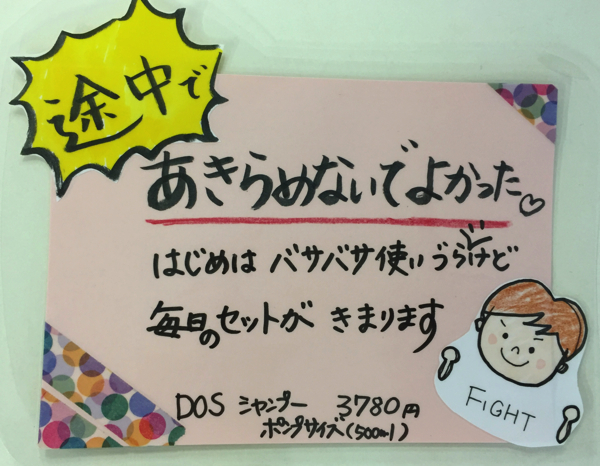 途中で
あきらめないでよかった♡
はじめは バサバサ使いづらいけど
毎日のセットが きまります
FiGHT
DOS シャンプー 3780円
ポンプサイズ(500ml)